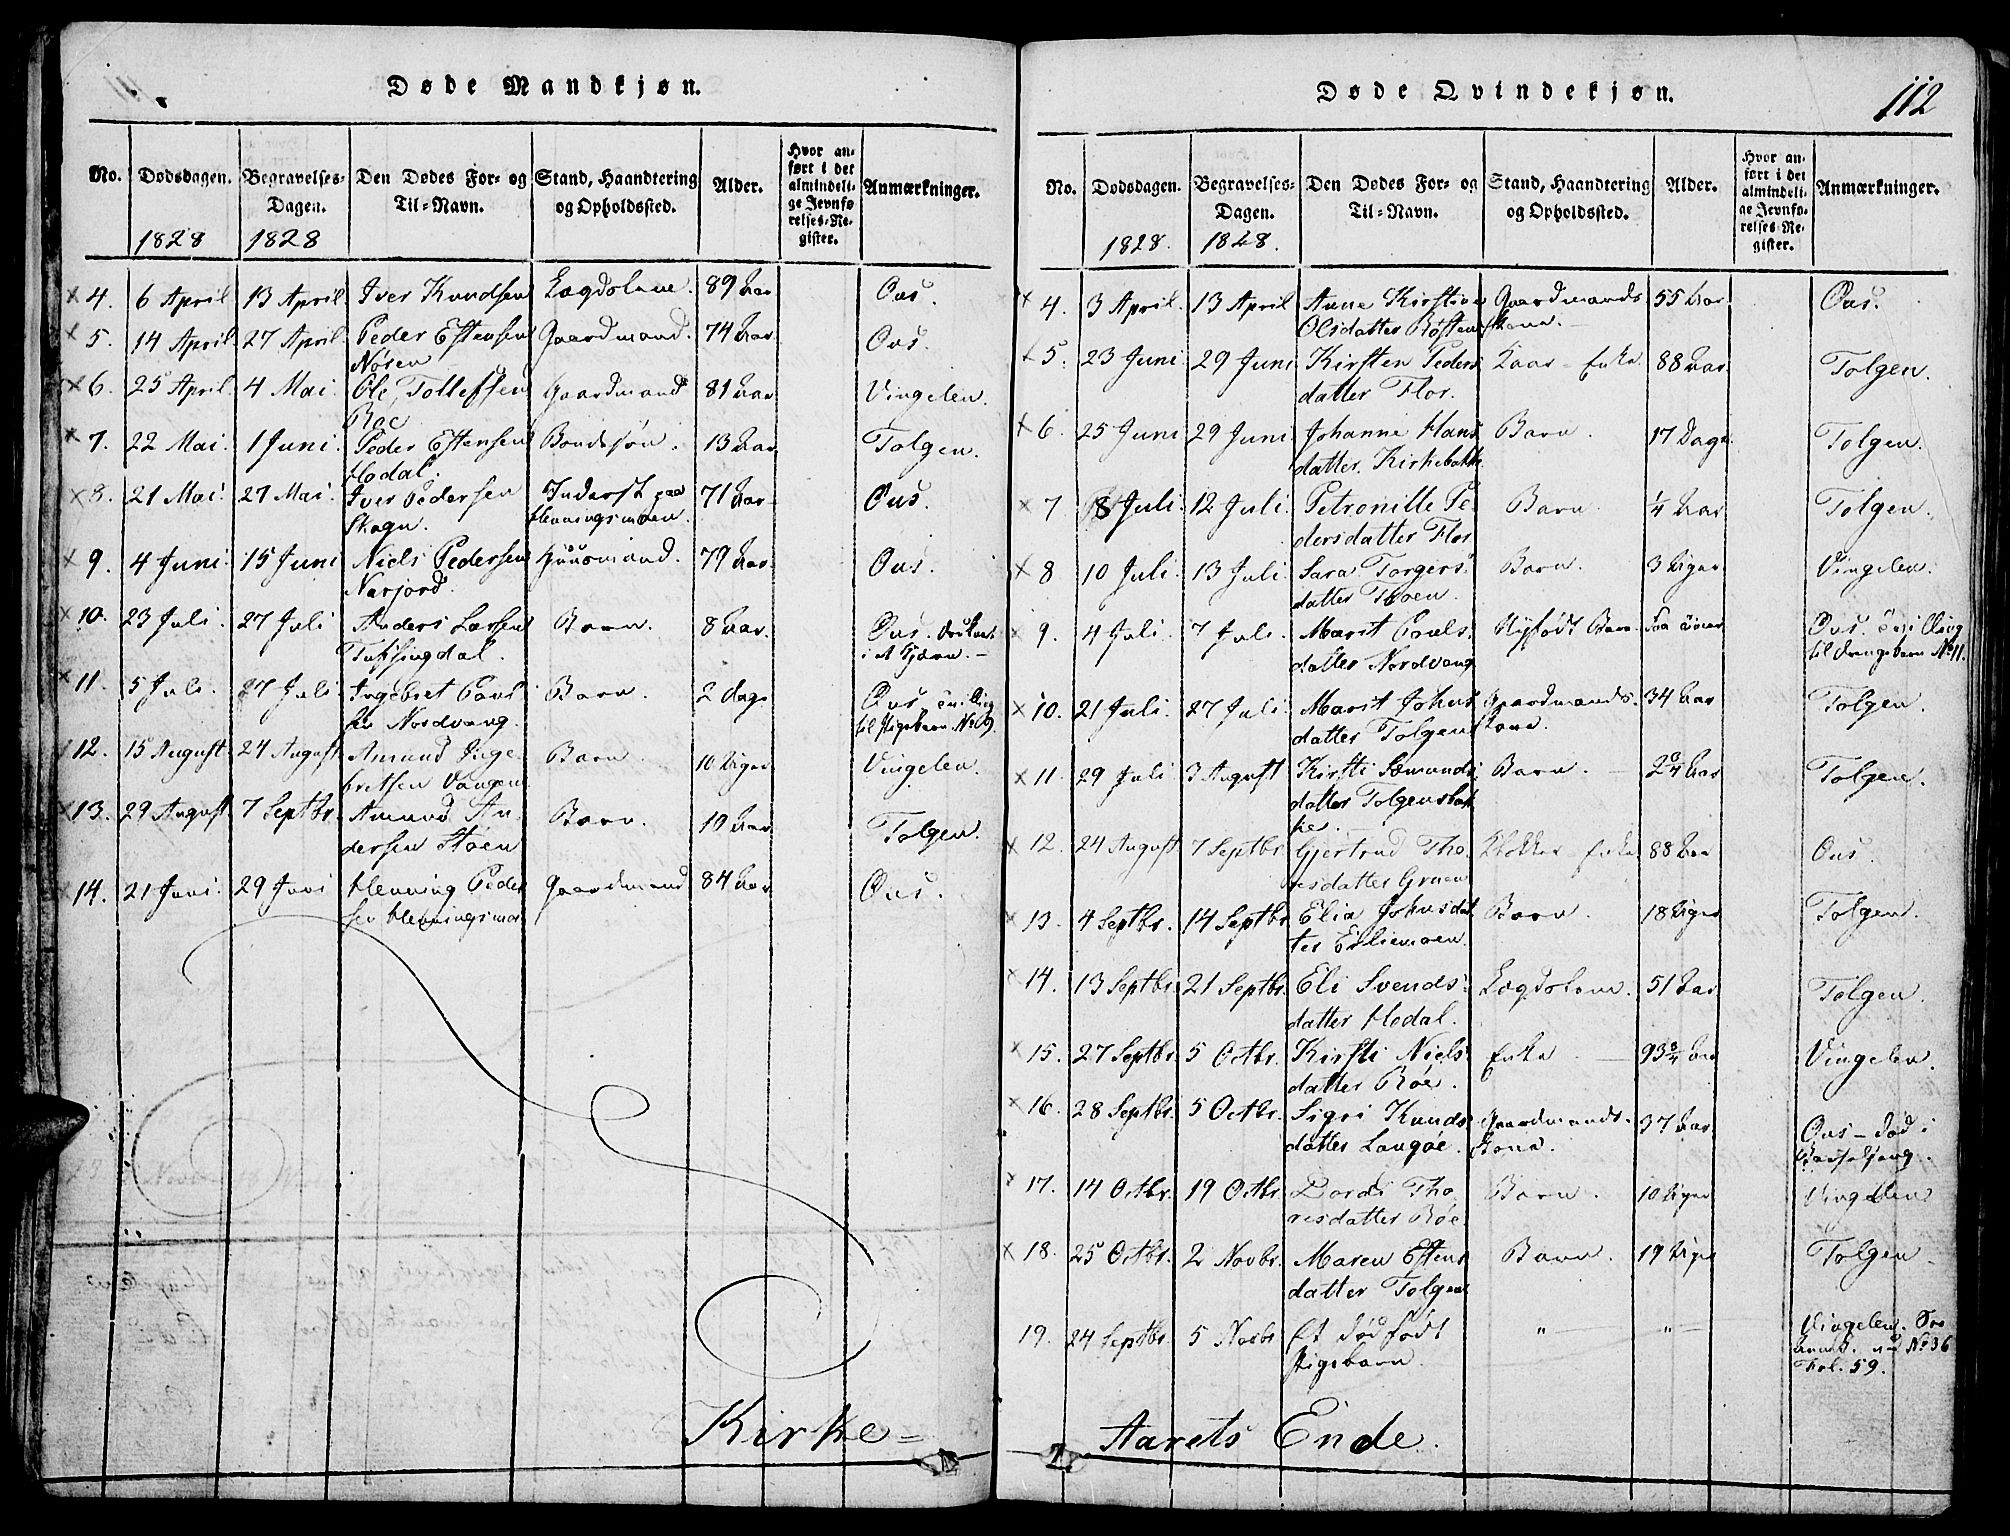 Døde Mandkjøn.
No. Dødsdagen. Begravelses-Dagen. Den Dødes For- og Til-Navn. Stand, Haandtering og Opholdssted. Alder. Hvor anført i det almindelige Jevnførelses-Register. Anmærkninger.
1828 1828
4. 6 April 13 April Iver Knudsen Lægdslem. 89 Aar Ous.
5. 14 April 27 April Peder Estensen Gaardmand. 74 Aar Ous.
Nøsen
6. 25 April 4 Mai. Ole Tollefsen Gaardmand 81 Aar Vingelen.
Roe
7. 22 Mai. 1 Juni Peder Estensen Bondesøn. 13 Aar Tolgen.
Hodal.
8. 21 Mai 27 Mai. Iver Pedersen Inderst paa 71 Aar Ous.
Skogn. Henningsmoen.
9. 4 Juni. 15 Juni Niels Pedersen Huusmand. 79 Aar Ous.
Narjord.
10. 23 Juli. 27 Juli Anders Larsen Barn. 8 Aar. Ous. druknet
Tufsingdal. i et Kjærn.
11. 5 Juli. 27 Juli. Ingebret Povl- Barn. 2 dage Ous. Tvilling
sen Nordvang. til Pigebarn No 9.
12. 15 August 24 August Amund Inge- Barn. 10 Uger Vingelen.
bretsen Vangen
13. 29 August 7 Septbr. Amund An- Barn. 19 Aar Tolgen.
dersen Støen
14. 21 Juni. 29 Juni Henning Peder Gaardmand 84 Aar Ous.
sen Henningsmo
Kirke-
Døde Qvindekjøn.
112
No. Dødsdagen. Begravelses-Dagen. Den Dødes For- og Til-Navn. Stand, Haandtering og Opholdssted. Alder. Hvor anført i det almindelige Jevnførelses-Register. Anmærkninger.
1828. 1828.
4. 3 April. 13 April Anne Kirstine Gaardmands 55 Aar. Ous.
Olsdatter Røsten kone.
5. 23 Juni 29 Juni Kirsten Peders Kaar-Enke 88 Aar. Tolgen.
datter Flor.
6. 25 Juni 29 Juni Johanne Hans Barn. 17 Dage. Tolgen.
datter Kirkebakk
7 8 Juli. 12 Juli. Petronille Pe- Barn. 1/4 Aar Tolgen.
dersdatter Flor
8 10 Juli. 13 Juli. Sara Torgers- Barn. 3 Uger Vingelen.
datter Moen.
9. 4 Juli. 7 Juli. Marit Povls- Nyfødt Barn. Ous. Tvilling
datter Nordvang til Drengebarn No 11.
10. 21 Juli. 27 Juli. Marit Johns Gaardmands- 34 Aar Tolgen.
datter Tolgen kone.
11. 29 Juli 3 August Kirsti Semunds- Barn. 2 3/4 Aar Tolgen.
datter Tolgensbak
ke.
12. 24 August 7 Septbr Gjertrud Tho- Klokker-Enke 88 Aar Ous.
resdatter Gruen
13. 4 Septbr. 14 Septbr. Elia Johnsdat Barn. 18 Uger Tolgen.
ter Erliemoen.
14. 13 Septbr. 21 Septbr. Eli Svends- Lægdslem. 51 Aar Tolgen.
datter Hodal.
15. 27 Septbr. 5 Octbr. Kirsti Niels Enke 93 3/4 Aar Vingelen.
datter Røe.
16. 28 Septbr. 5 Octbr. Sigri Knuds Gaardmands- 37 Aar. Ous - død i
datter Langøe. kone. Barselseng.
17. 14 Octbr. 19 Octbr Dordi Tho- Barn. 10 Uger Vingelen
resdatter Røe
18. 25 Octbr. 2 Novbr. Maren Estens Barn. 19 Uger Tolgen
datter Tolgen
19. 24 Septbr. 5 Novbr Et dødfødt „ „ Vingelen.
Pigebarn. No 36
Fol. 59.
Aarets Ende.